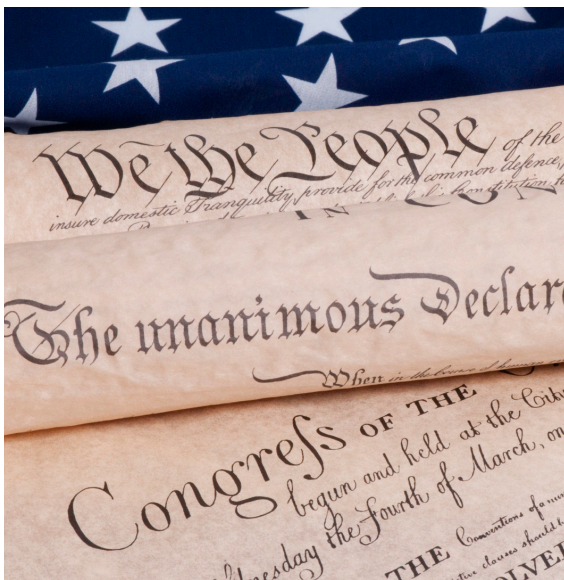 We the People of the
insure domestic Tranquility, provide for the common defence,
IN CON
The unanimous Declar
When in the Course of human
Congreſs OF THE
begun and held at the City
the Fourth of March, on
THE Conventions of a